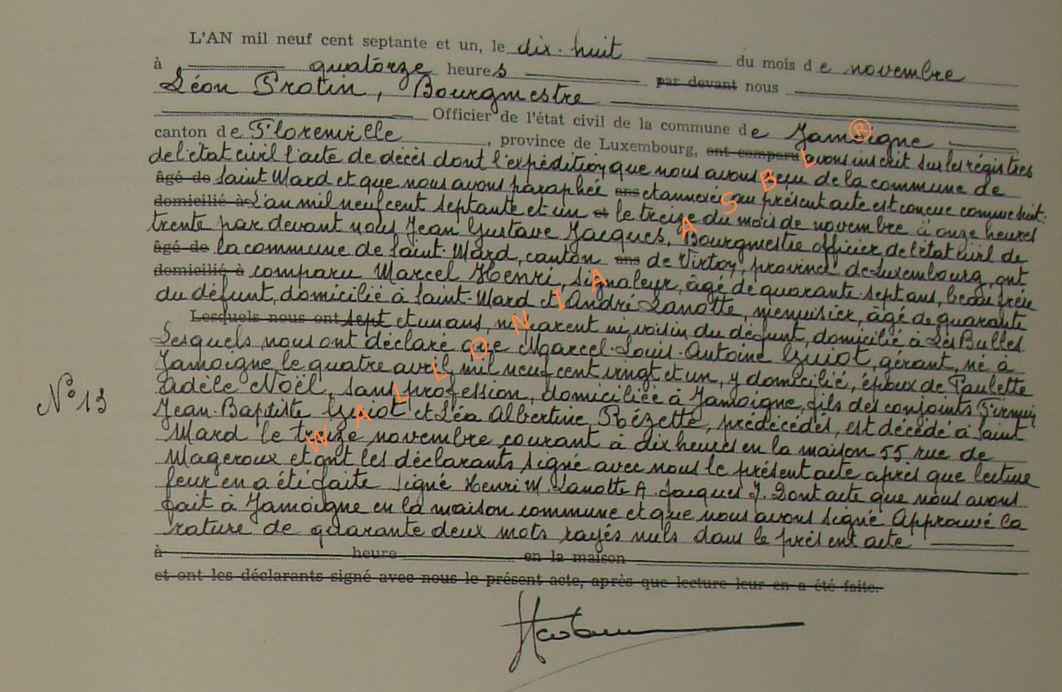 L'AN mil neuf cent septante et un, le dix-huit du mois de novembre
à quatorze heures par devant nous
Léon Protin, Bourgmestre
Officier de l'état civil de la commune de Jamoigne
canton de Florenville, province de Luxembourg, ont comparu avons inscrit sur les régistres
de l'état civil l'acte de décès dont l'expédition que nous avons reçu de la commune de
âgé de Saint Mard et que nous avons paraphée ans et annexée au présent acte est conçue comme suit:
domicilié à L'an mil neuf cent septante et un et le treize du mois de novembre à onze heures
trente par devant nous Jean Gustave Jacques, Bourgmestre officier de l'état civil de
âgé de la commune de Saint-Mard, canton ans de Virton, province de Luxembourg, ont
domicilié à comparu Marcel Henri, signaleur, âgé de quarante sept ans, beau frère
du défunt, domicilié à Saint-Mard et André Lanotte, menuisier, âgé de quarante
Lesquels nous ont sept et un ans, ni parent ni voisin du défunt, domicilié à Les Bulles
Lesquels nous ont déclaré que Marcel-Louis-Antoine Guiot, gérant, né à
Jamoigne le quatre avril mil neuf cent vingt et un, y domicilié, époux de Paulette
Adèle Noël, sans profession, domiciliée à Jamoigne, fils des conjoints Firmin
Jean-Baptiste Guiot et Léa Albertine Rézette, prédécédés, est décédé à Saint
Mard le treize novembre courant à dix heures en la maison 55 rue de
Mageroux et ont les déclarants signé avec nous le présent acte après que lecture
leur en a été faite signé Henri M. Lanotte A. Jacques J. Dont acte que nous avons
N° 13 fait à Jamoigne en la maison commune et que nous avons signé Approuvé la
rature de quarante deux mots rayés nuls dans le présent acte
à heure en la maison
et ont les déclarants signé avec nous le présent acte, après que lecture leur en a été faite.
WALLONIA ASBL ®